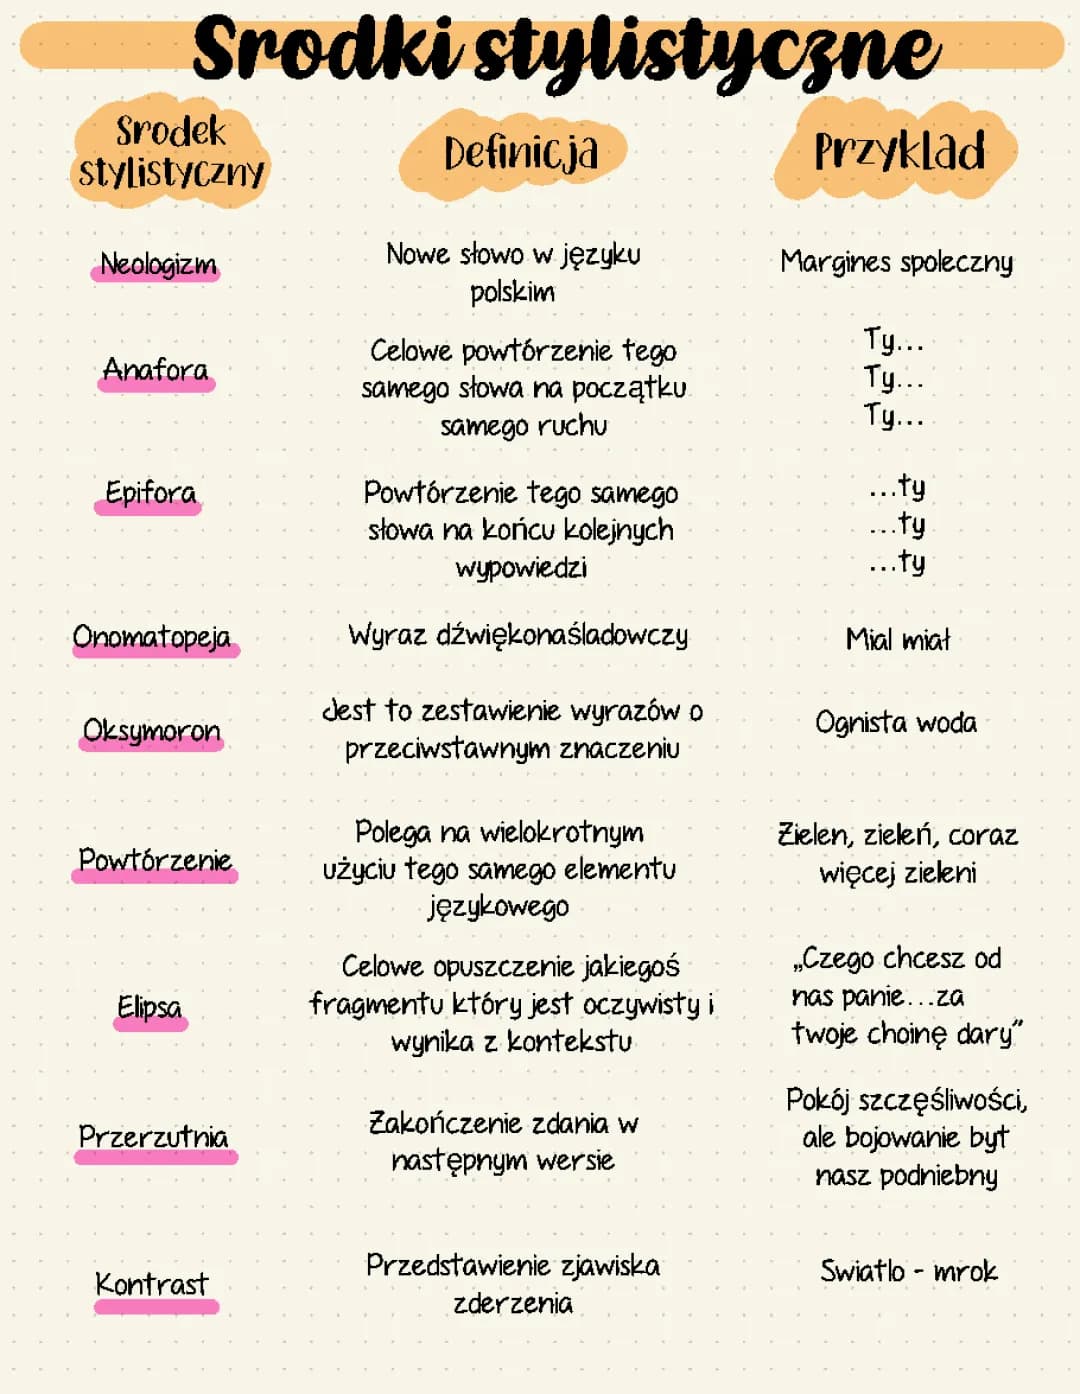 Srodki stylistyczne
Srodek
stylistyczny
Definicja
Przyklad
Neologizm
Nowe słowo w języku
polskim
Margines spoleczny
Anafora
Celowe powtórzenie tego
samego słowa na początku
samego ruchu
Ty...
Ty...
Ty...
Epifora
Powtórzenie tego samego
słowa na końcu kolejnych
wypowiedzi
...ty
...ty
...ty
Onomatopeja
Wyraz dźwiękonaśladowczy
Mial miał
Oksymoron
Jest to zestawienie wyrazów o
przeciwstawnym znaczeniu
Ognista woda
Powtórzenie
Polega na wielokrotnym
użyciu tego samego elementu
językowego
Zielen, zieleń, coraz
więcej zieleni
Elipsa
Celowe opuszczenie jakiegoś
fragmentu który jest oczywisty i
wynika z kontekstu
„Czego chcesz od
nas panie...za
twoje choinę dary”
Przerzutnia
Zakończenie zdania w
następnym wersie
Pokój szczęśliwości,
ale bojowanie byt
nasz podniebny
Kontrast
Przedstawienie zjawiska
zderzenia
Swiatlo - mrok